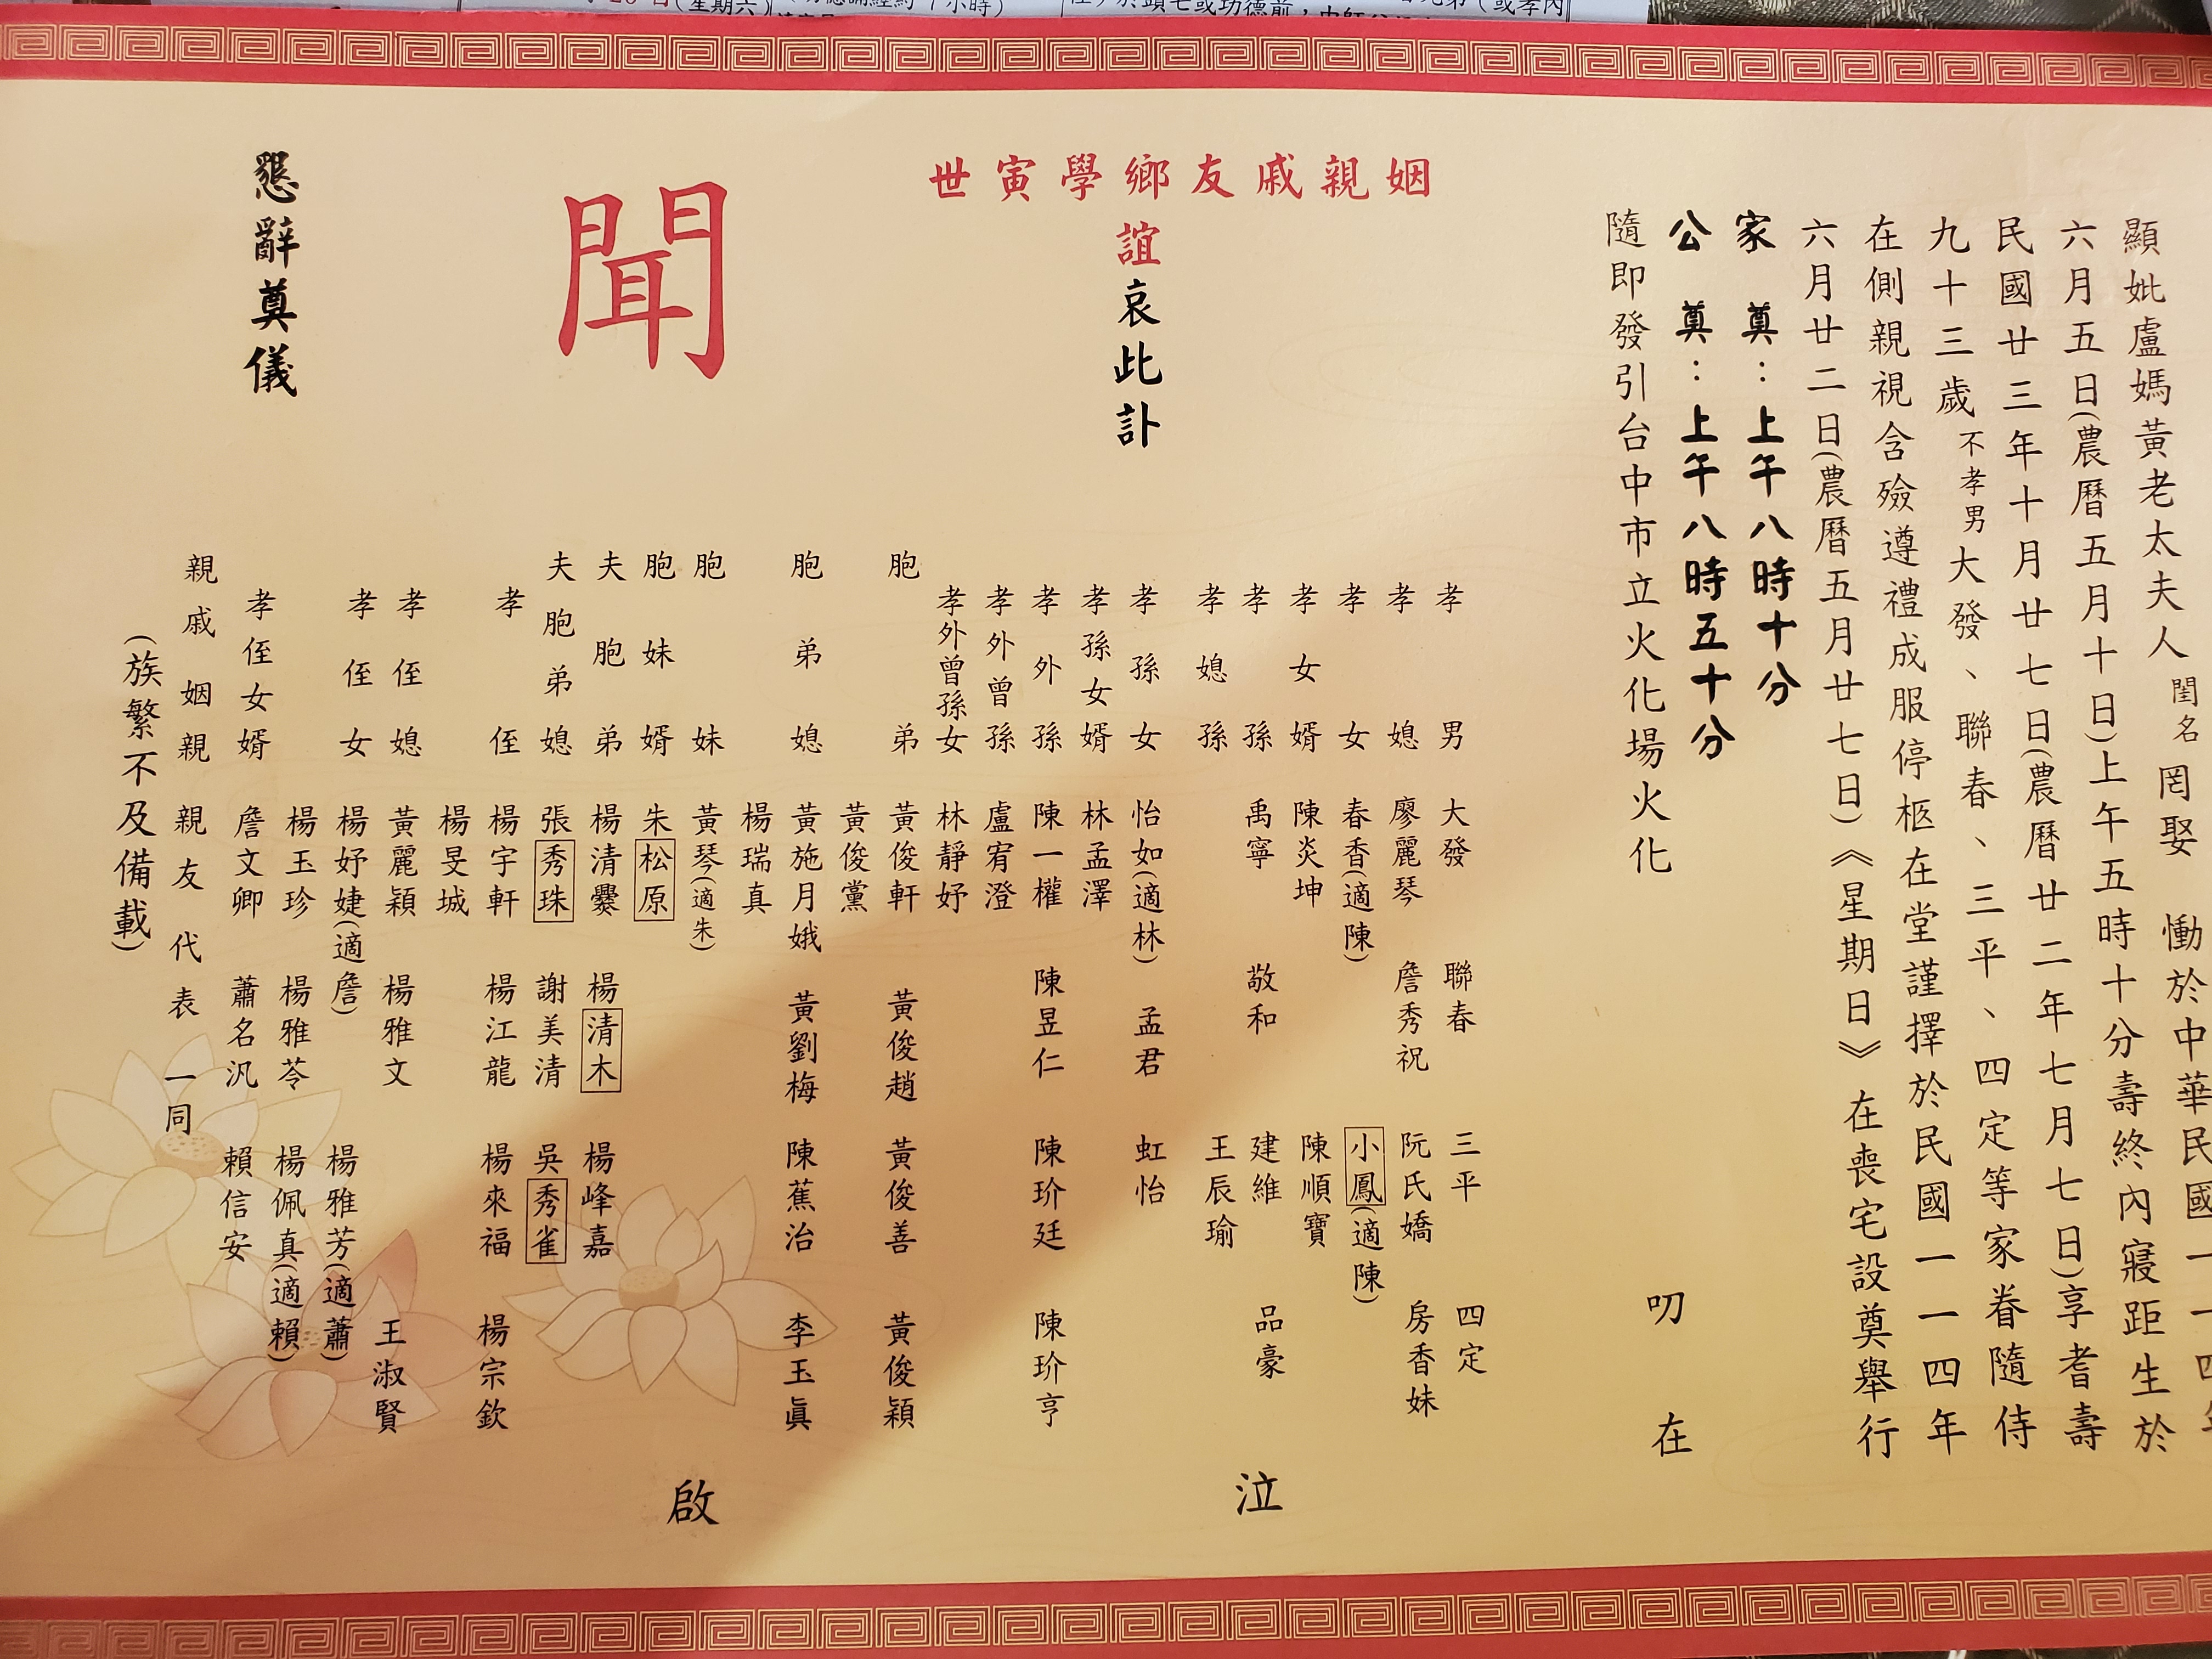 顯妣盧媽黃老太夫人閨名罔娶 慟於中華民國一一四年
六月五日(農曆五月十日)上午五時十分壽終內寢距生於
民國廿三年十月廿七日(農曆廿二年七月七日)享耆壽
九十三歲不孝男大發、聯春、三平、四定等家眷隨侍
在側親視含殮遵禮成服停柩在堂謹擇於民國一一四年
六月廿二日(農曆五月廿七日)《星期日》在喪宅設奠舉行
家 奠：上午八時十分
公 奠：上午八時五十分
隨即發引台中市立火化場火化
叨 在
世寅學鄉友戚親姻
誼哀此訃
聞
孝男 大發 聯春 三平 四定
孝媳 廖麗琴 詹秀祝 阮氏嬌 房香妹
孝女 春香(適陳) 小鳳(適陳)
孝女婿 陳炎坤 陳順寶
孝孫 禹寧 敬和 建維 品豪
孝媳孫 王辰瑜
孝孫女 怡如(適林) 孟君 虹怡
孝孫女婿 林孟澤
孝外孫 陳一權 陳昱仁 陳玠廷 陳玠亨
孝外曾孫 盧宥澄
孝外曾孫女 林靜妤
胞弟 黃俊軒 黃俊趙 黃俊善 黃俊穎
黃俊黨
胞弟媳 黃施月娥 黃劉梅 陳蕉治 李玉眞
楊瑞真
胞妹 黃琴(適朱)
胞妹婿 朱松原
夫胞弟 楊清爨 楊清木 楊峰嘉
夫胞弟媳 張秀珠 謝美清 吳秀雀
孝侄 楊宇軒 楊江龍 楊來福 楊宗欽
楊旻城
孝侄媳 黃麗穎 楊雅文 王淑賢
孝侄女 楊妤婕(適詹) 楊雅芳(適蕭)
楊玉珍 楊雅苓 楊佩真(適賴)
孝侄女婿 詹文卿 蕭名汎 賴信安
親戚姻親 親友代表一同
(族繁不及備載)
泣 啟
懇辭奠儀